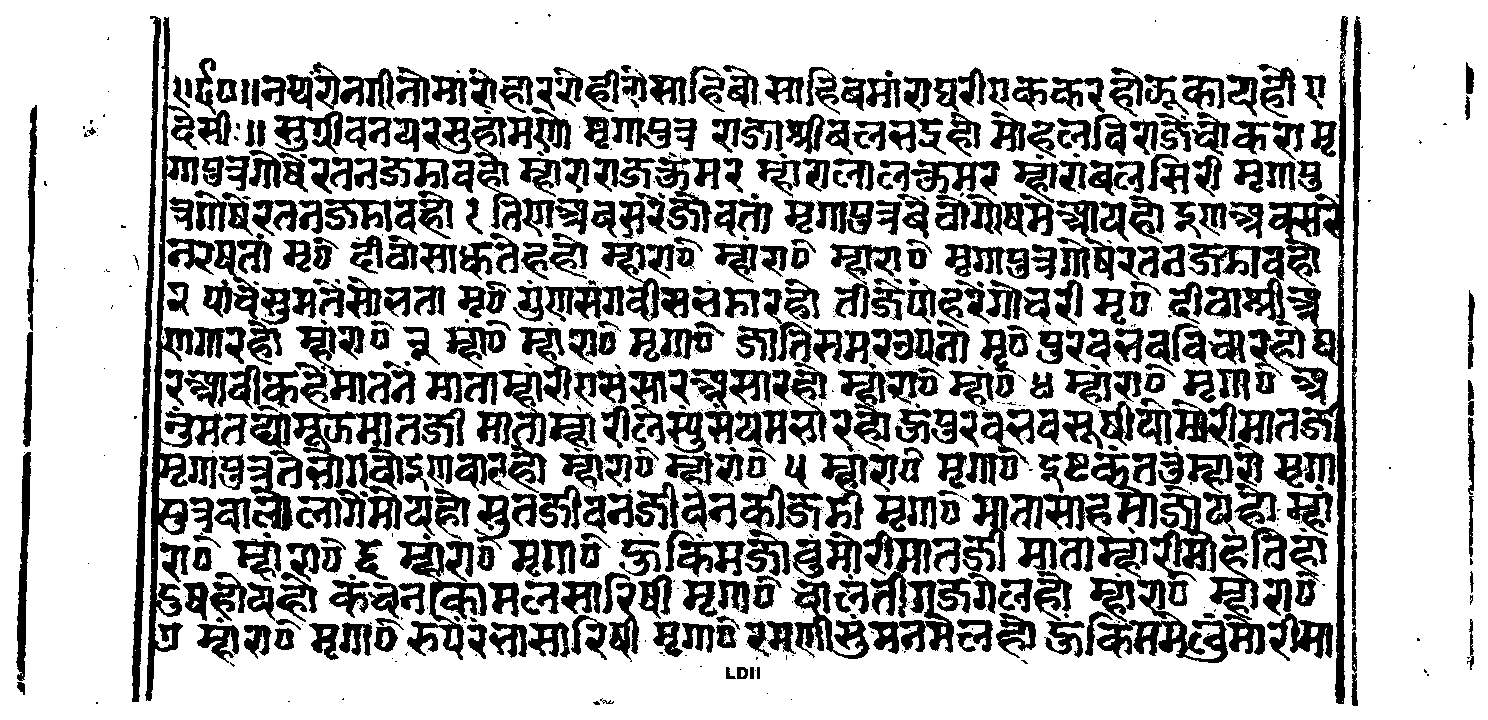 ॥र्द०॥ नथरो नगीनो मारो हार रो हीरो साहिबो साहिब मांरा घरी एक कर हो ऊका य हो ए
देसी ॥ सुग्रीव नयर सुहामणो मृगापुत्र राजा श्रीबलभद्र हो मोहल विराजै बो करा मृ
गापुत्र गोषै रतन जडाव हो म्हांरा राजकुमर म्हांरा लालकुमर म्हांरा बलसिरी मृगापु
त्र गोषै रतन जडाव हो १ तिण अवसरै जोवतां मृगापुत्र बैठो गोष मे आय हो इण अवसरे
नरषतां मृ० दीठो साध कतेह हो म्हारा० म्हांरा० म्हारा० मृगापुत्र गोषै रतन जडाव हो
२ पांचे सुमतै सोभता मृ० गुण सगवीस भंडार हो तीजै पोहरै गोचरी मृ० दीठा श्री अ
णगार हो म्हांरा० ३ म्हां० म्हांरा० मृगा० जातिसमरत्रपतो मृ० पुरव भव विचार हो घ
र आवी कहै मातनें माता म्हांरी ए संसार असार हो म्हांरा० म्हां० ४ म्हांरा० मृगा० अ
नुमत द्यो मूऊ मातजी माता म्हांरी लेस्युं संयम भार हो ऊ पुरव भव सूषीयो मोरी मातजी
मृगापुत्र तै भोगवो इण वार हो म्हांरा० म्हांरा० ५ म्हांरा० मृगा० इष्ट कंत तुं म्हारो मृगा
पुत्र वालो लागै मोय हो सुत जीवन जीवन की जडी मृगा० माता साह मो जोय हो म्हां
रा० म्हांरा० ६ म्हांरा० मृगा० ऊ किम जोवु मोरी मातजी माता म्हारी मोहति हां
दुष होय हो कंचन कोमल सारिषी मृगा० चालती गजगेल हो म्हांरा० म्हांरा०
७ म्हांरा० मृगा० रुपै रंभा सारिषी मृगा० रमणी सुमन मेल हो ऊ किम मेलुं मोरी मा
LDII